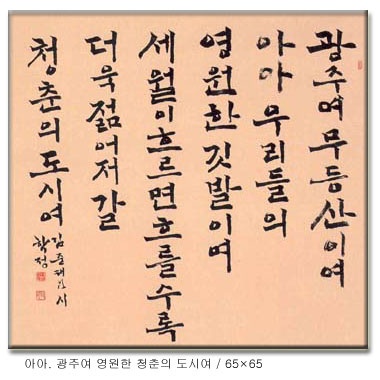 광주여 무등산이여
아아 우리들의
영원한 깃발이여
세월이 흐르면 흐를수록
더욱 젊어져 갈
청춘의 도시여
김준태님 시
학정
아아, 광주여 영원한 청춘의 도시여 / 65×65